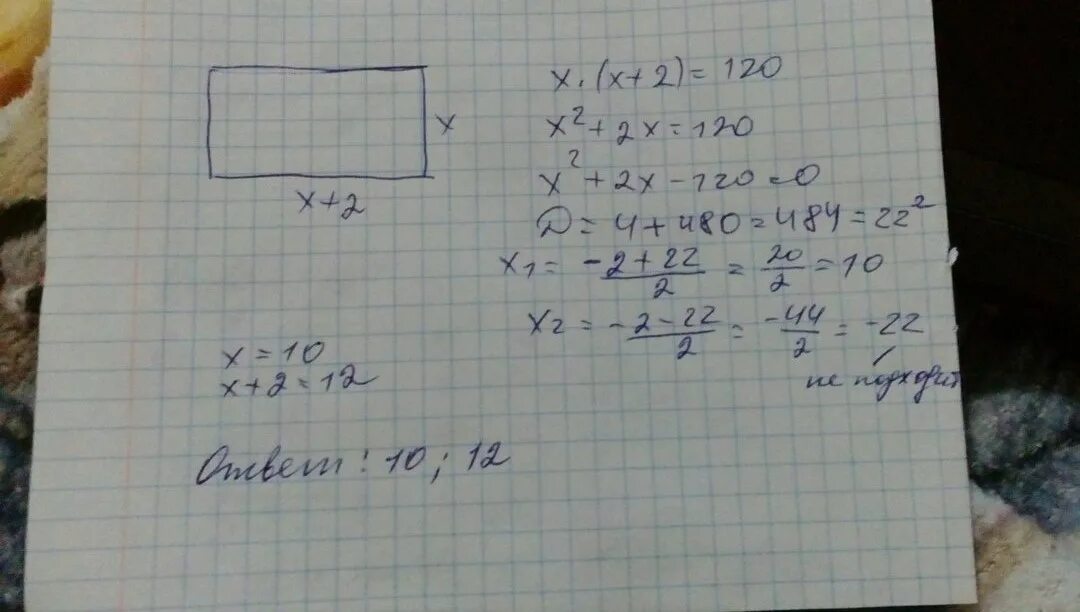 x
x+2
x·(x+2)=120
x²+2x=120
x²+2x-120=0
D=4+480=484=22²
x₁=\frac{-2+22}{2}=\frac{20}{2}=10
x₂=\frac{-2-22}{2}=\frac{-44}{2}=-22
не подходит
x=10
x+2=12
Ответ: 10; 12